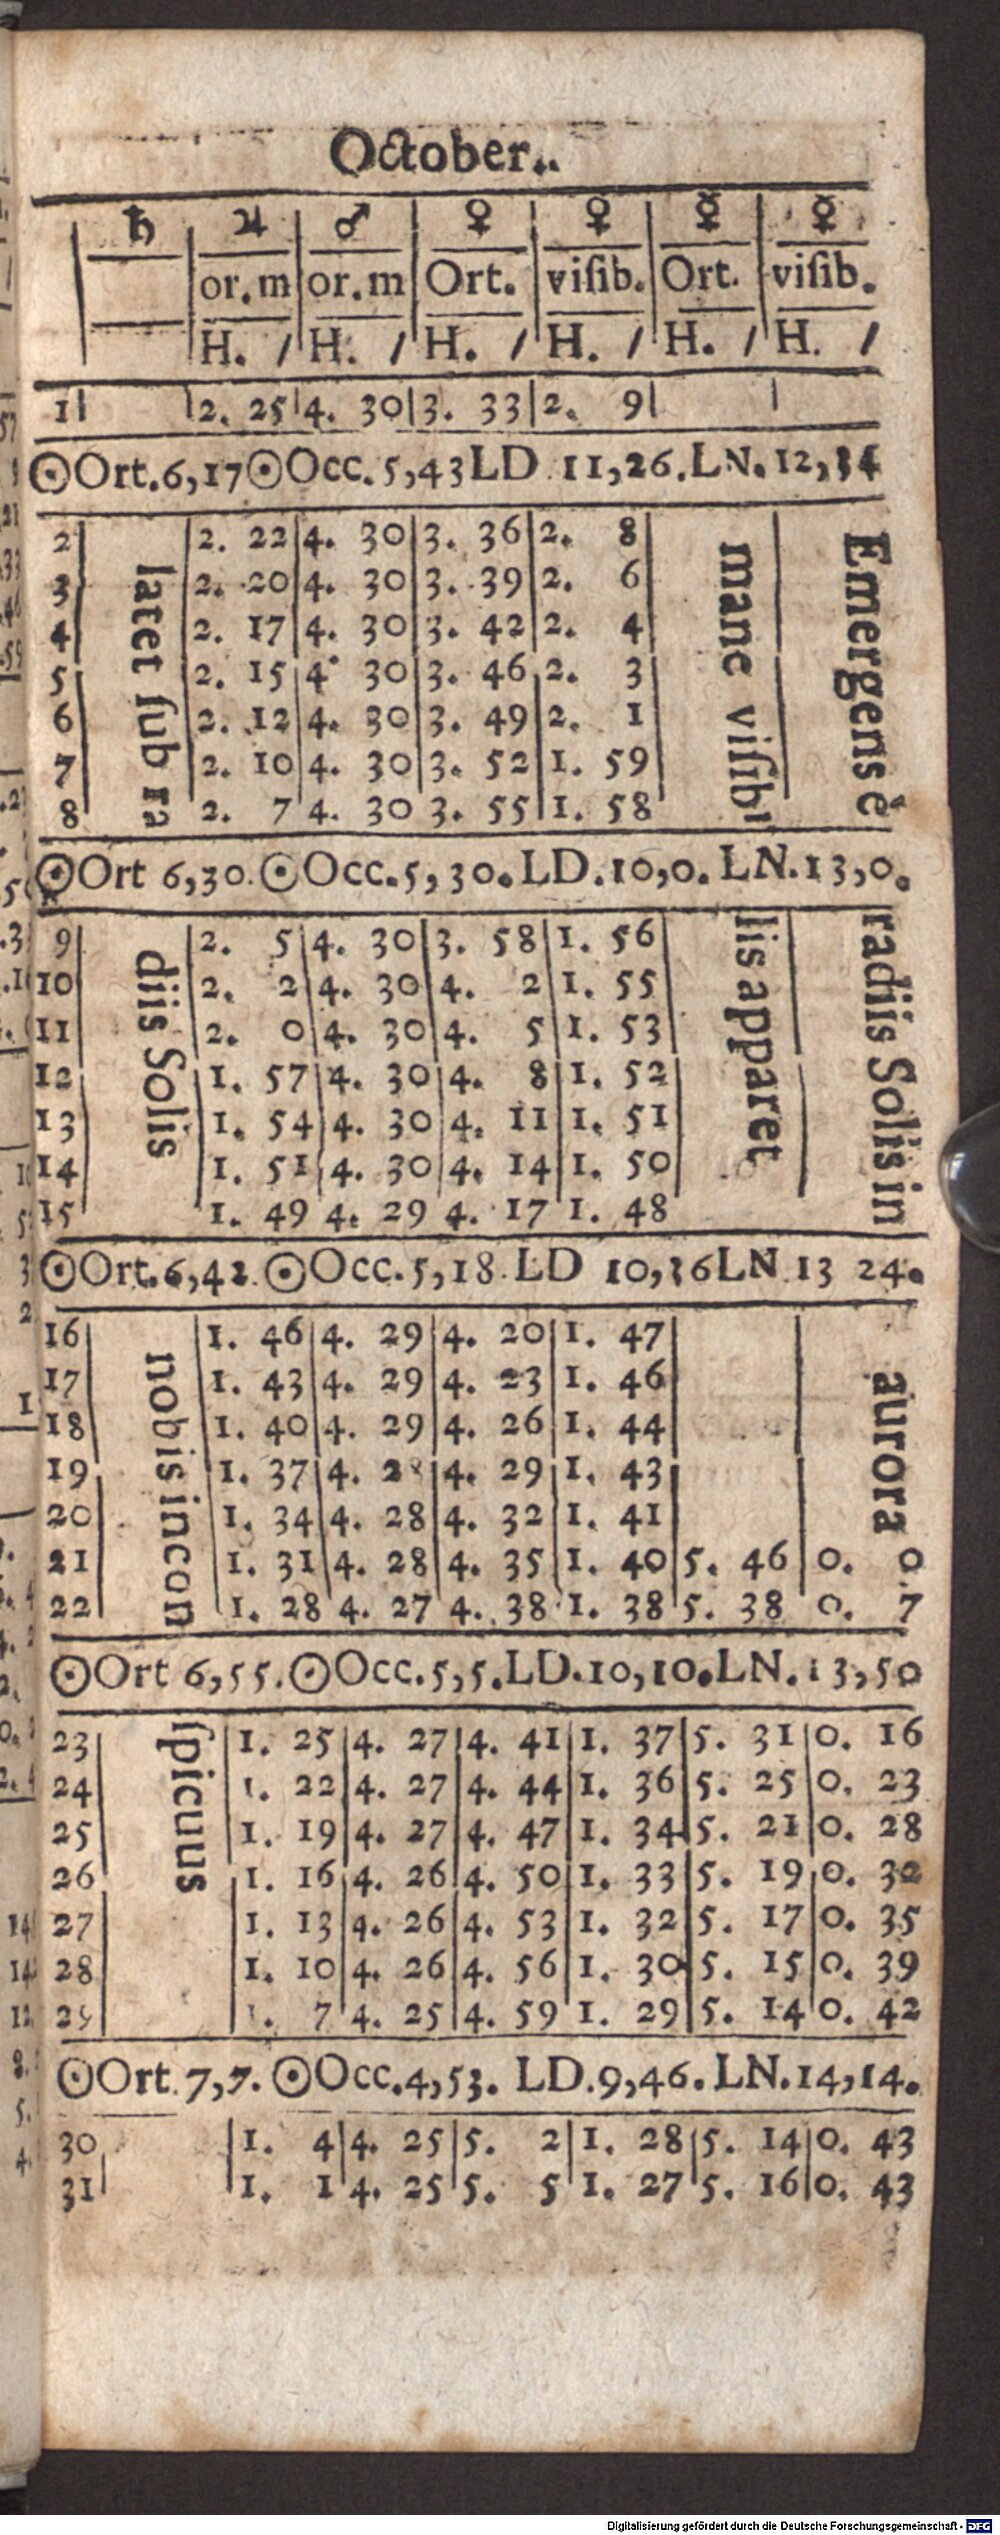 October..
♄ ♃ ♂ ♀ ♀ ☿ ☿
or.m or.m Ort. viſib. Ort. viſib.
H. / H. / H. / H. / H. / H. /
1 2. 25 4. 30 3. 33 2. 9
☉Ort.6,17☉Occ.5,43LD.11,26.LN.12,34
2 2. 22 4. 30 3. 36 2. 8
3 2. 20 4. 30 3. 39 2. 6
4 2. 17 4. 30 3. 42 2. 4
5 2. 15 4. 30 3. 46 2. 3
6 2. 12 4. 30 3. 49 2. 1
7 2. 10 4. 30 3. 52 1. 59
8 2. 7 4. 30 3. 55 1. 58
latet ſub ra
mane viſibi
Emergens è
☉Ort 6,30.☉Occ.5,30.LD.10,0.LN.13,0.
9 2. 5 4. 30 3. 58 1. 56
10 2. 2 4. 30 4. 2 1. 55
11 2. 0 4. 30 4. 5 1. 53
12 1. 57 4. 30 4. 8 1. 52
13 1. 54 4. 30 4. 11 1. 51
14 1. 51 4. 30 4. 14 1. 50
15 1. 49 4. 29 4. 17 1. 48
diis Solis
lis apparet
radiis Solis in
☉Ort.6,42.☉Occ.5,18.LD 10,36LN.13 24.
16 1. 46 4. 29 4. 20 1. 47
17 1. 43 4. 29 4. 23 1. 46
18 1. 40 4. 29 4. 26 1. 44
19 1. 37 4. 28 4. 29 1. 43
20 1. 34 4. 28 4. 32 1. 41
21 1. 31 4. 28 4. 35 1. 40 5. 46 0. 0
22 1. 28 4. 27 4. 38 1. 38 5. 38 0. 7
nobis incon
aurora
☉Ort 6,55.☉Occ.5,5.LD.10,10.LN.13,50
23 1. 25 4. 27 4. 41 1. 37 5. 31 0. 16
24 1. 22 4. 27 4. 44 1. 36 5. 25 0. 23
25 1. 19 4. 27 4. 47 1. 34 5. 21 0. 28
26 1. 16 4. 26 4. 50 1. 33 5. 19 0. 32
27 1. 13 4. 26 4. 53 1. 32 5. 17 0. 35
28 1. 10 4. 26 4. 56 1. 30 5. 15 0. 39
29 1. 7 4. 25 4. 59 1. 29 5. 14 0. 42
ſpicuus
☉Ort.7,7.☉Occ.4,53. LD.9,46.LN.14,14.
30 1. 4 4. 25 5. 2 1. 28 5. 14 0. 43
31 1. 1 4. 25 5. 5 1. 27 5. 16 0. 43
Digitalisierung gefördert durch die Deutsche Forschungsgemeinschaft - DFG